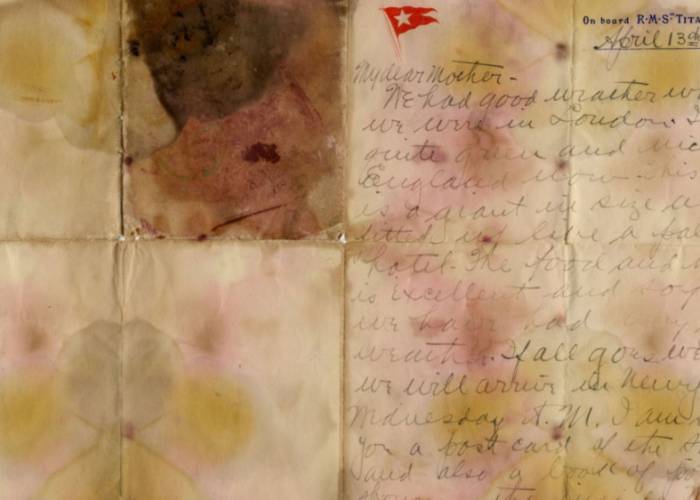 On board R·M·S "TITA
April 13
My dear Mother-
We had good weather w
we were in London.
quite green and nic
England now. This
is a giant in size a
fitted up like a pal
hotel. The food and
is excellent and
we have had
weather. If all goes we
we will arrive in New
Wednesday A.M. I am
you a post card of the
and also a book of